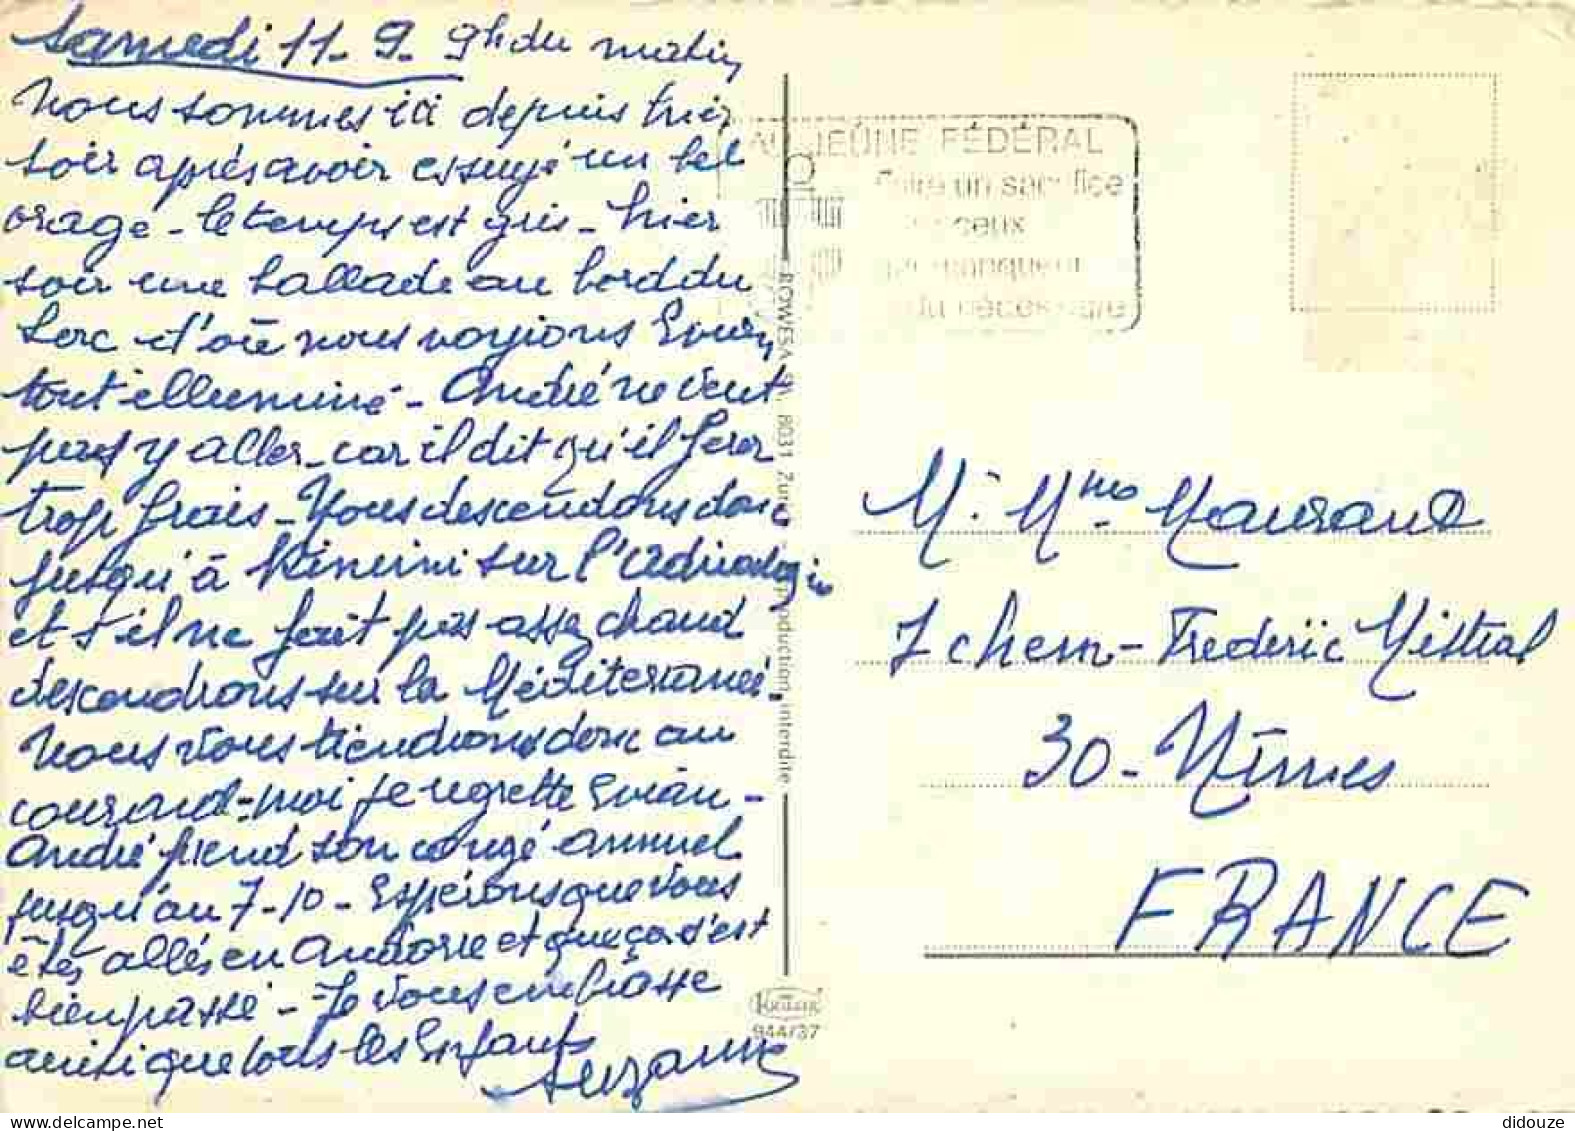 Samedi 11-9- 9h du matin,
Nous sommes ici depuis hier
soir après avoir essuyé un bel
orage - le temps est gris - hier
soir une ballade au bord du
Lac d'où nous voyions Evian,
tout illuminé - André ne veut
pas y aller - car il dit qu'il fera
trop frais - Nous descendons donc
jusqu'à Rimini sur l'adriatique
et s'il ne fait pas assez chaud
descendrons sur la Méditerranée.
Nous vous tiendrons donc au
courant - moi je regrette Evian -
André prend son congé annuel
jusqu'au 7-10 - Espérons que vous
êtes allés en Andorre et que ça s'est
bien passé - Je vous embrasse
ainsi que tous les Enfants
Suzanne
ROWESA SA, 8031 Zurich production interdite
944/37
AU JEÛNE FÉDÉRAL
Faire un sacrifice
ceux
qui manquent
du nécessaire
M. Mme Maurand
7 chem - Frederic Mistral
30 - Nîmes
FRANCE
didouze